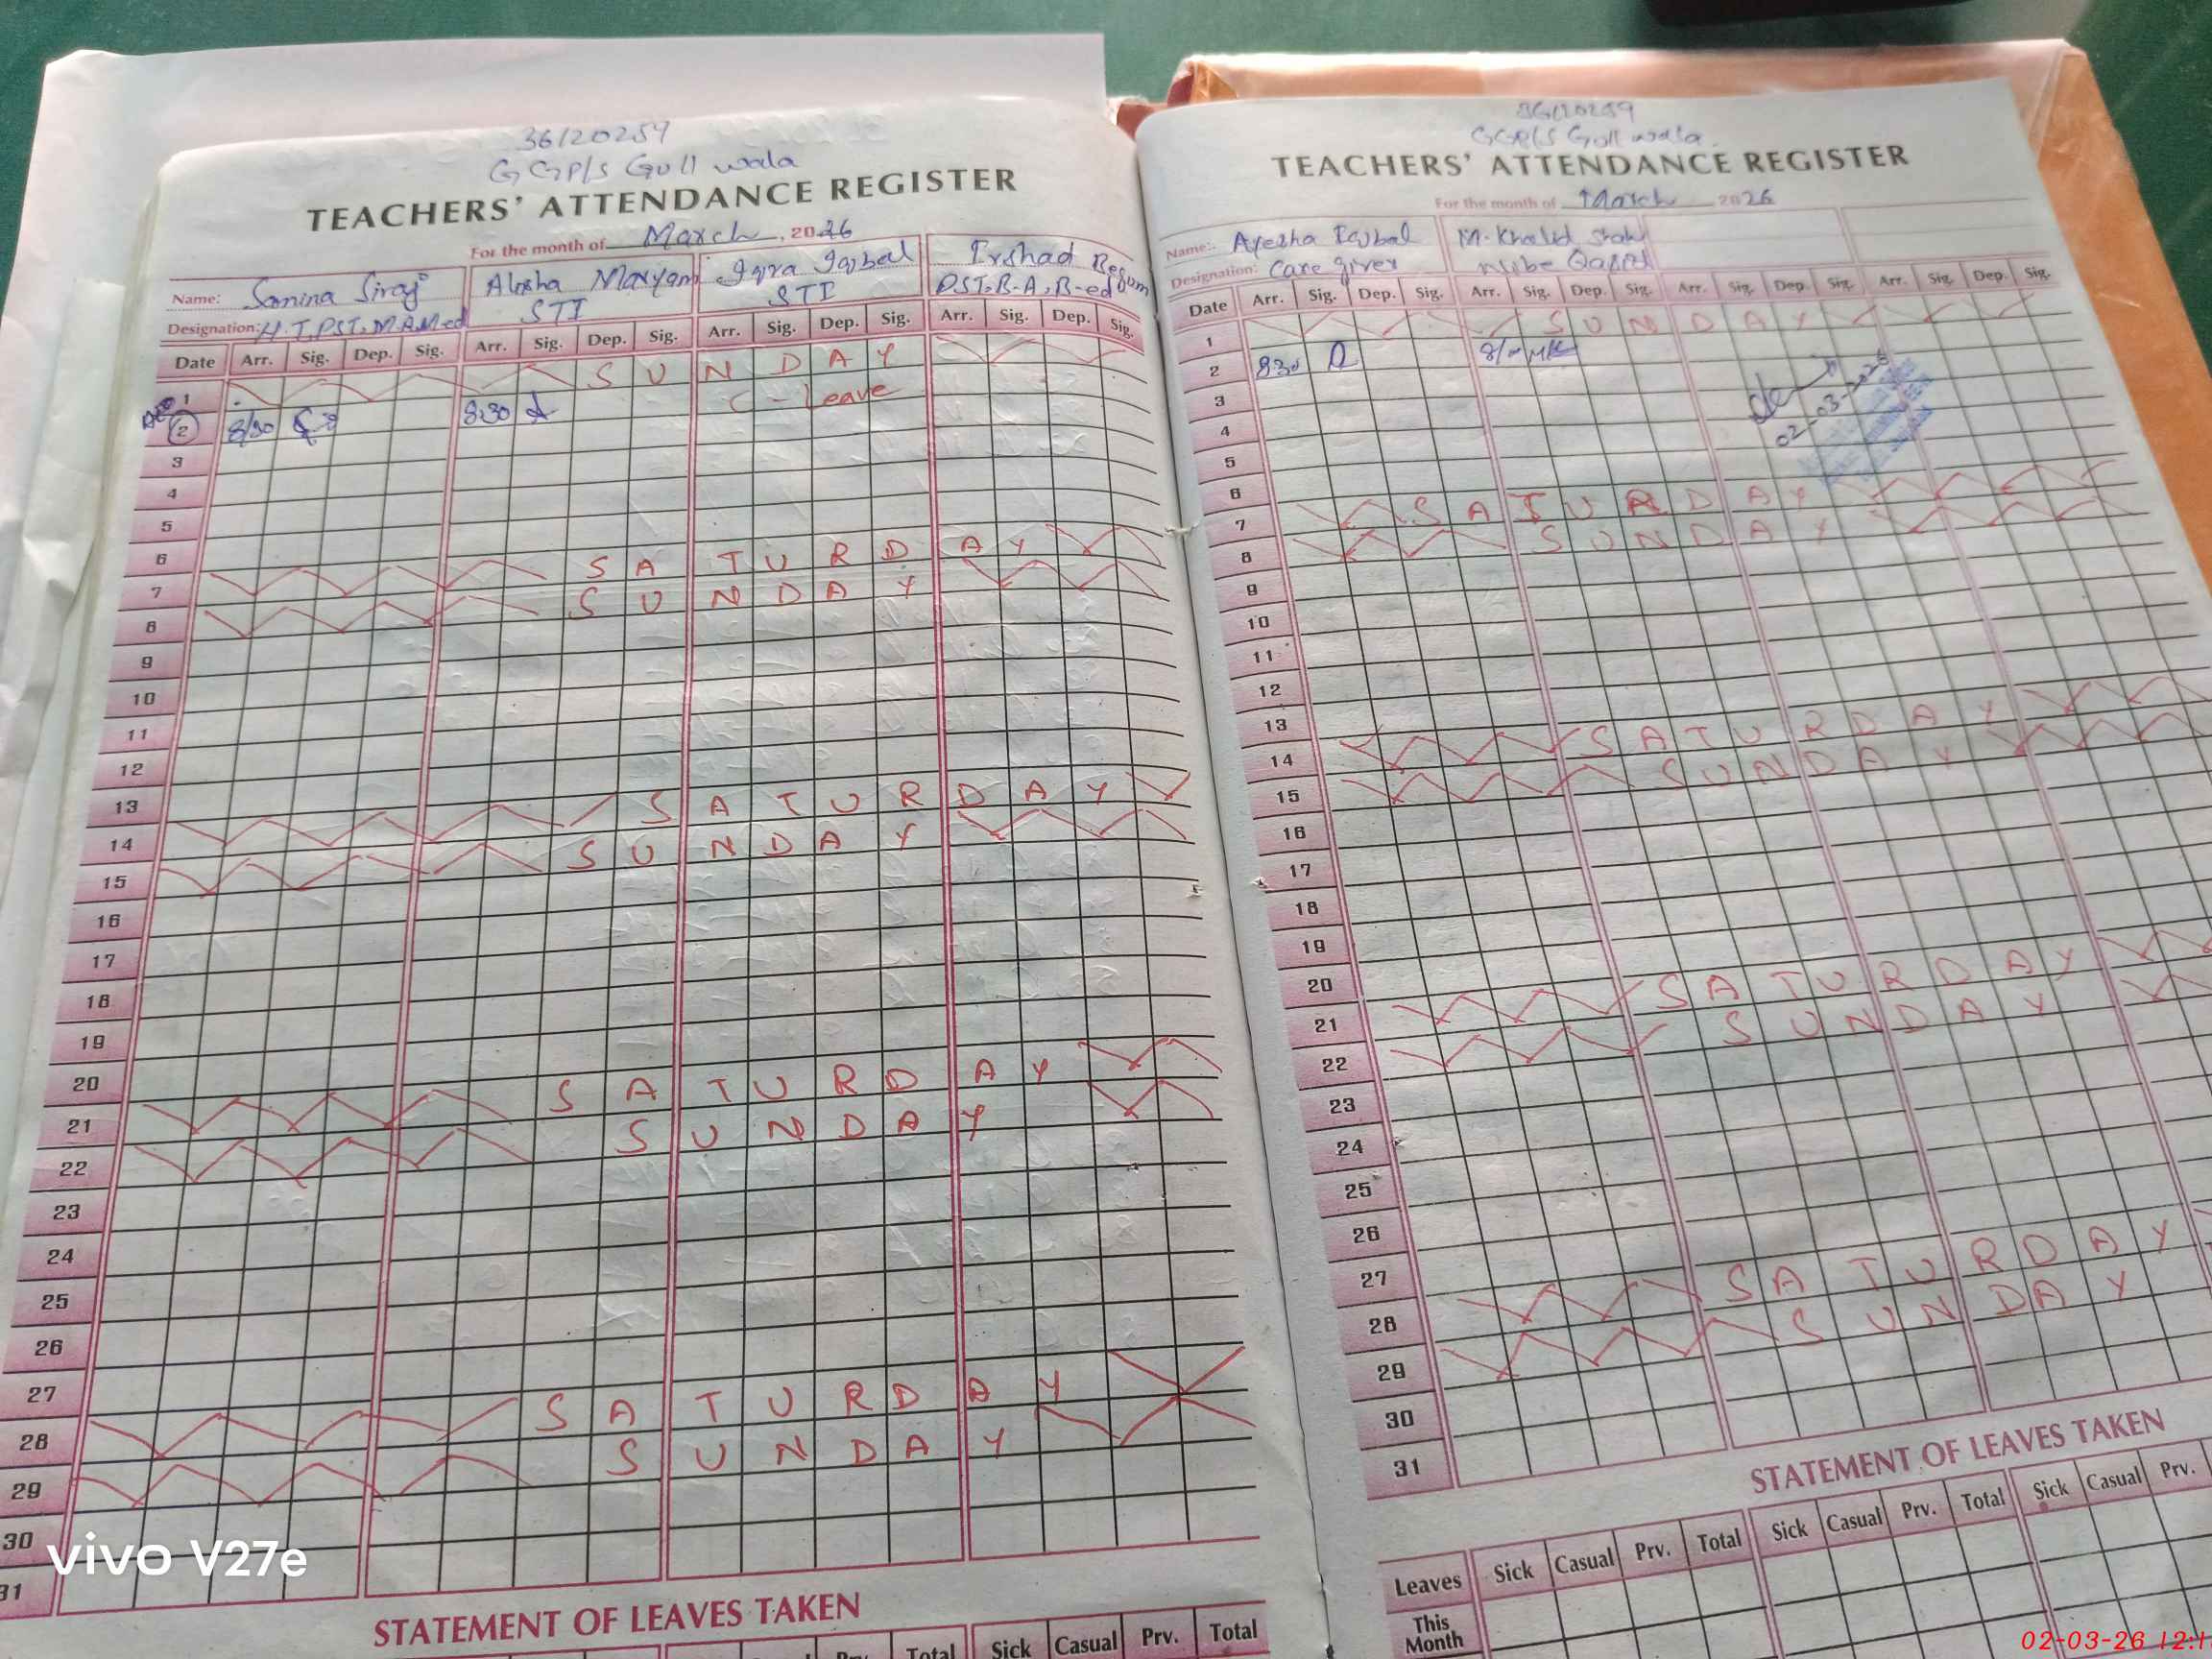 36120259
GGP/S Gull wala
TEACHERS' ATTENDANCE REGISTER
For the month of March, 2026
Name: Samina Siraj Alisha Maryam Iqra Iqbal Irshad Begum
Designation: H.T,PST,M.A,M.ed STI STI PST,B.A,B-ed
Date Arr. Sig. Dep. Sig. Arr. Sig. Dep. Sig. Arr. Sig. Dep. Sig. Arr. Sig. Dep. Sig.
1 SUNDAY
2 8/30 8:30 C-Leave
3
4
5
6
7 SATURDAY
8 SUNDAY
9
10
11
12
13
14 SATURDAY
15 SUNDAY
16
17
18
19
20
21 SATURDAY
22 SUNDAY
23
24
25
26
27
28 SATURDAY
29 SUNDAY
30
31
STATEMENT OF LEAVES TAKEN
Total Sick Casual Prv. Total
vivo V27e
36120259
GGP/S Gull wala
TEACHERS' ATTENDANCE REGISTER
For the month of March 2026
Name: Ayesha Iqbal M. Khalid
Designation: Care giver
Date Arr. Sig. Dep. Sig. Arr. Sig. Dep. Sig. Arr. Sig. Dep. Sig. Arr. Sig. Dep. Sig.
1 SUNDAY
2 8:30
02-03-2026
3
4
5
6
7 SATURDAY
8 SUNDAY
9
10
11
12
13
14 SATURDAY
15 SUNDAY
16
17
18
19
20
21 SATURDAY
22 SUNDAY
23
24
25
26
27
28 SATURDAY
29 SUNDAY
30
31
STATEMENT OF LEAVES TAKEN
Leaves Sick Casual Prv. Total Sick Casual Prv. Total Sick Casual Prv.
This Month
02-03-26 12:1